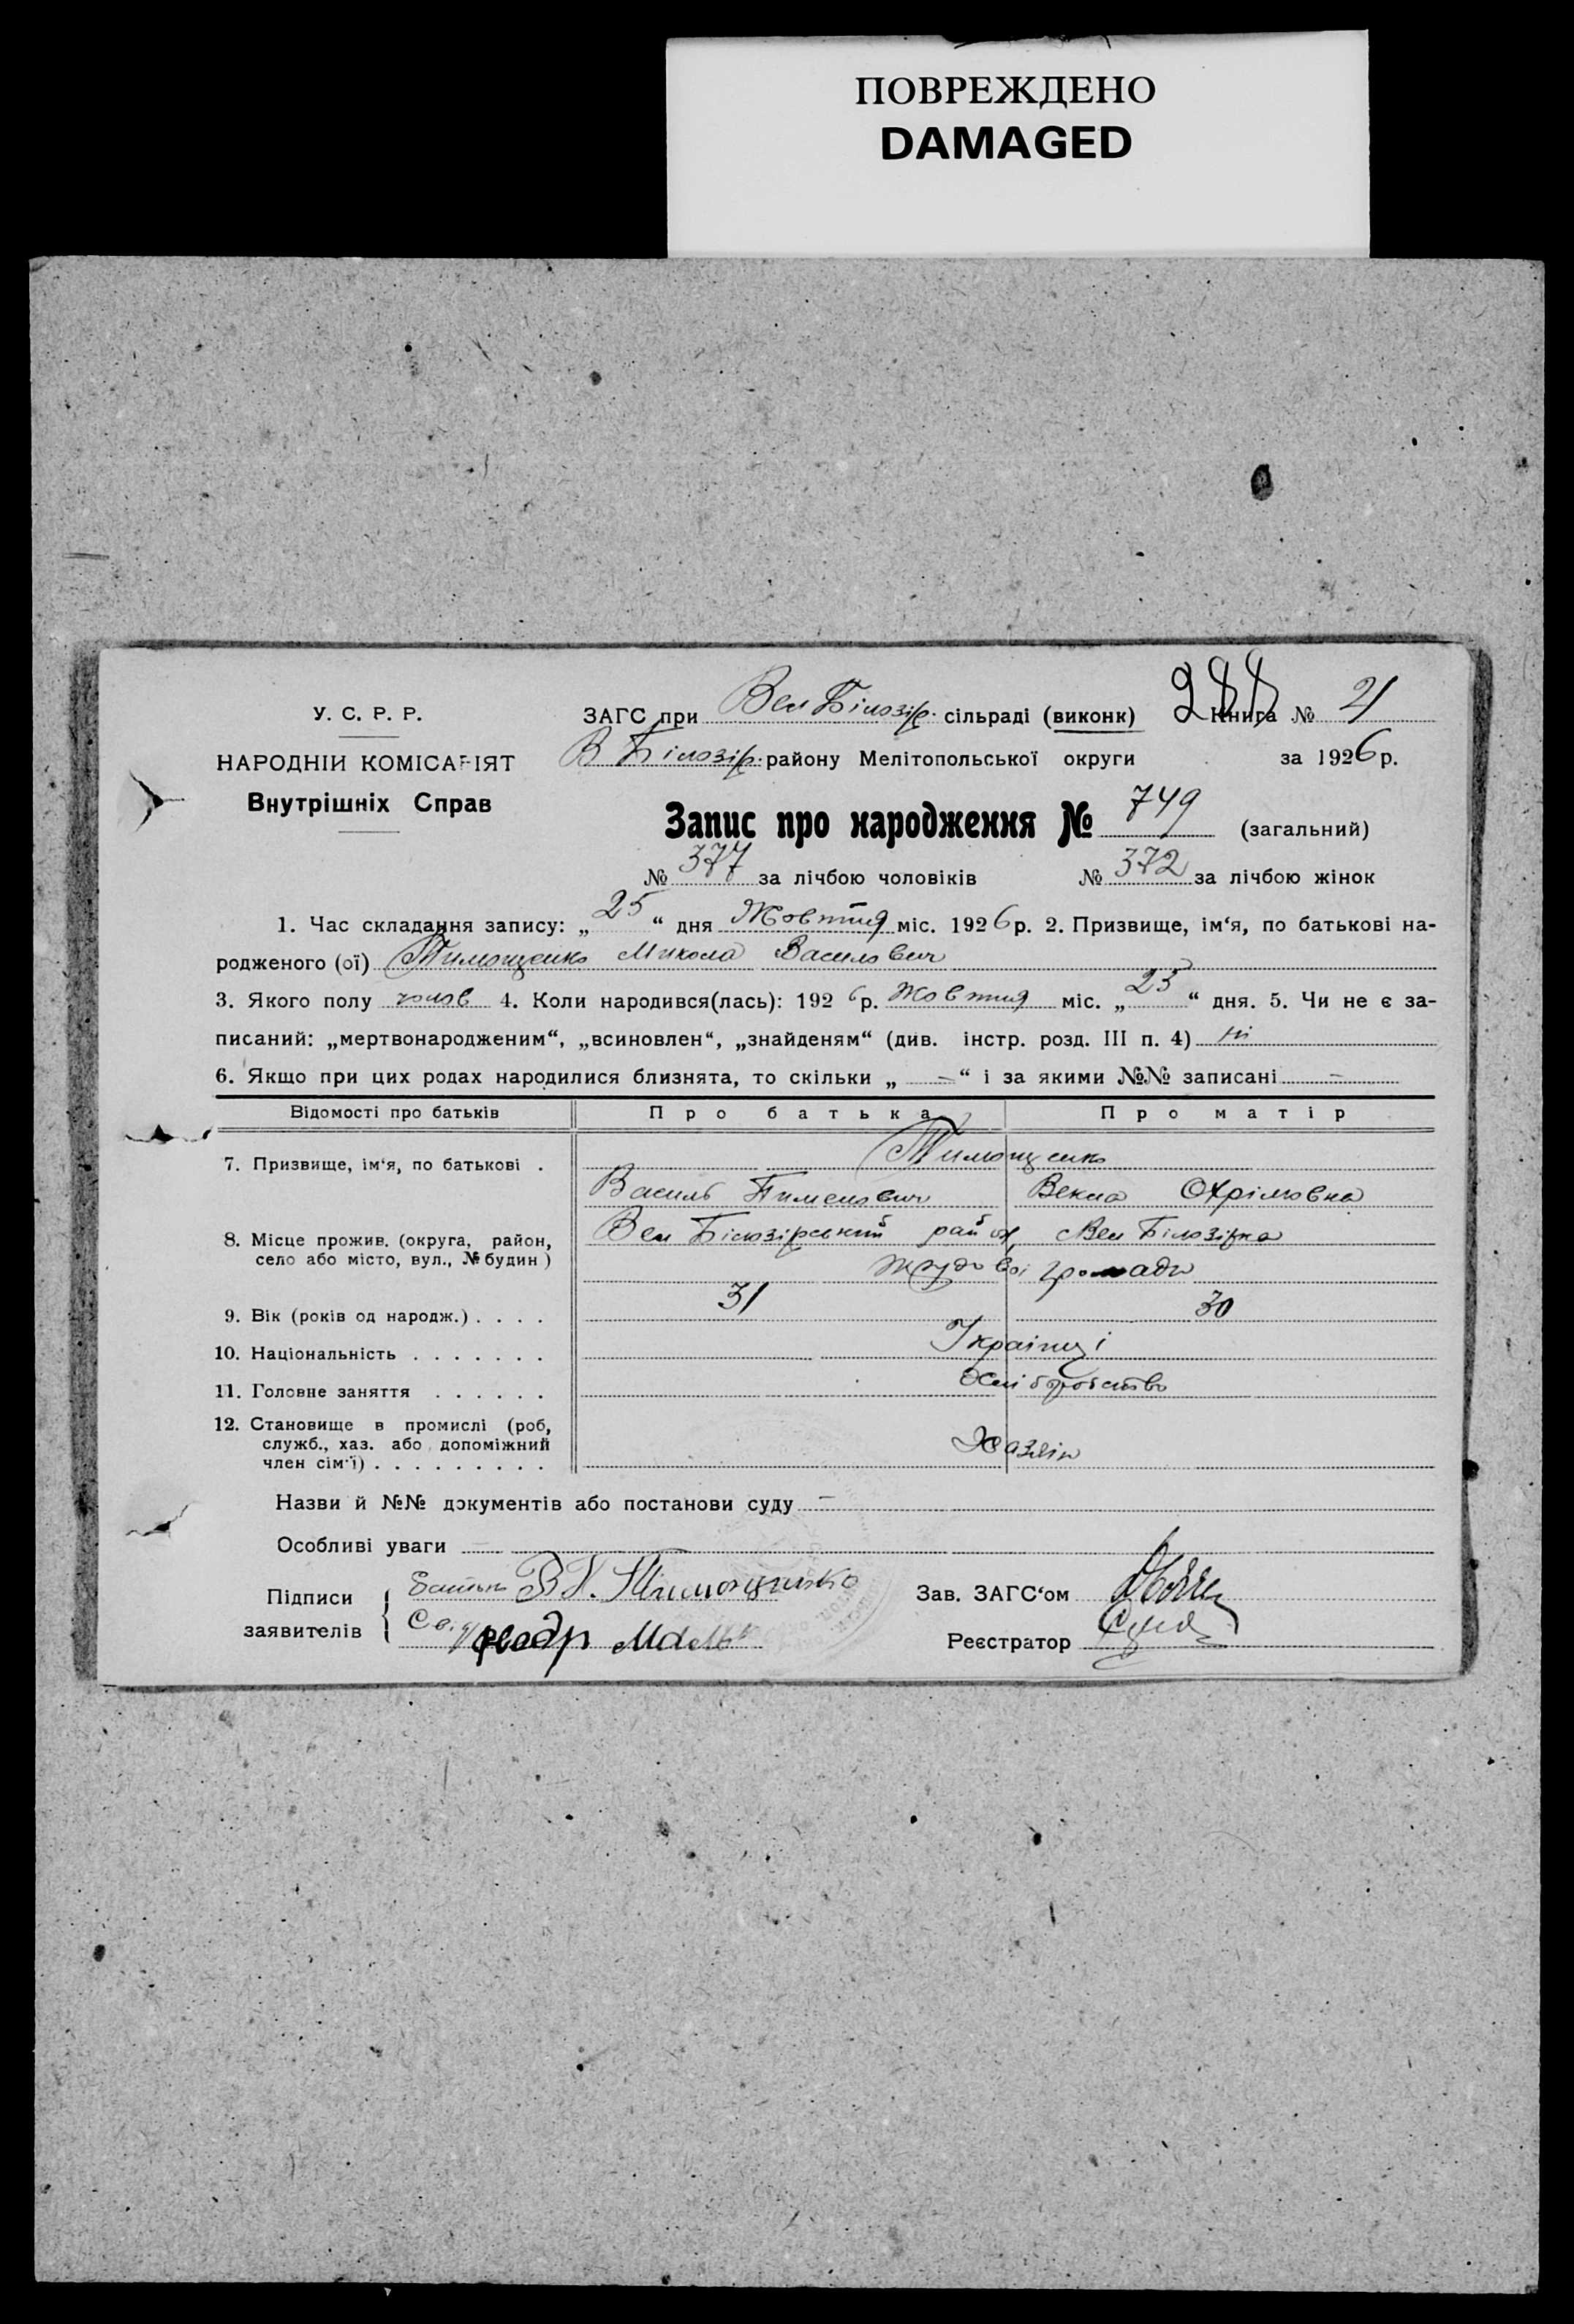 ПОВРЕЖДЕНО
DAMAGED
288
У. С. Р. Р.
ЗАГС при Вел Білозір. сільраді (виконк) Книга № 21
НАРОДНІЙ КОМІСАРІЯТ
В Білозір. району Мелітопольської округи за 1926 р.
Внутрішніх Справ
Запис про народження № 749 (загальний)
№ 377 за лічбою чоловіків № 372 за лічбою жінок
1. Час складання запису: „25“ дня Жовтня міс. 1926 р. 2. Призвище, ім‘я, по батькові на-
родженого (ої) Тимощенко Микола Васильович
3. Якого полу чолов 4. Коли народився(лась): 1926 р. Жовтня міс. „23“ дня. 5. Чи не є за-
писаний: „мертвонародженим“, „всиновлен“, „знайденям“ (див. інстр. розд. III п. 4) ні
6. Якщо при цих родах народилися близнята, то скільки „ – “ і за якими №№ записані –
Відомості про батьків Про батька Про матір
7. Призвище, ім‘я, по батькові . Тимощенко
Василь Пименович Векла Охрімовна
8. Місце прожив. (округа, район, село або місто, вул., № будин) Вел Білозірський район, с Вел Білозірка
Трудової громади
9. Вік (років од народж.) . . . . 31 30
10. Національність . . . . . . . Українці
11. Головне заняття . . . . . . Хліборобство
12. Становище в промислі (роб, служб., хаз. або допоміжний член сім‘ї) . . . . . . . . . Хазяін
Назви й №№ документів або постанови суду –
Особливі уваги
Підписи заявителів { Батько В П. Тимощенко
Зав. ЗАГС‘ом
Свід Федір
Реєстратор